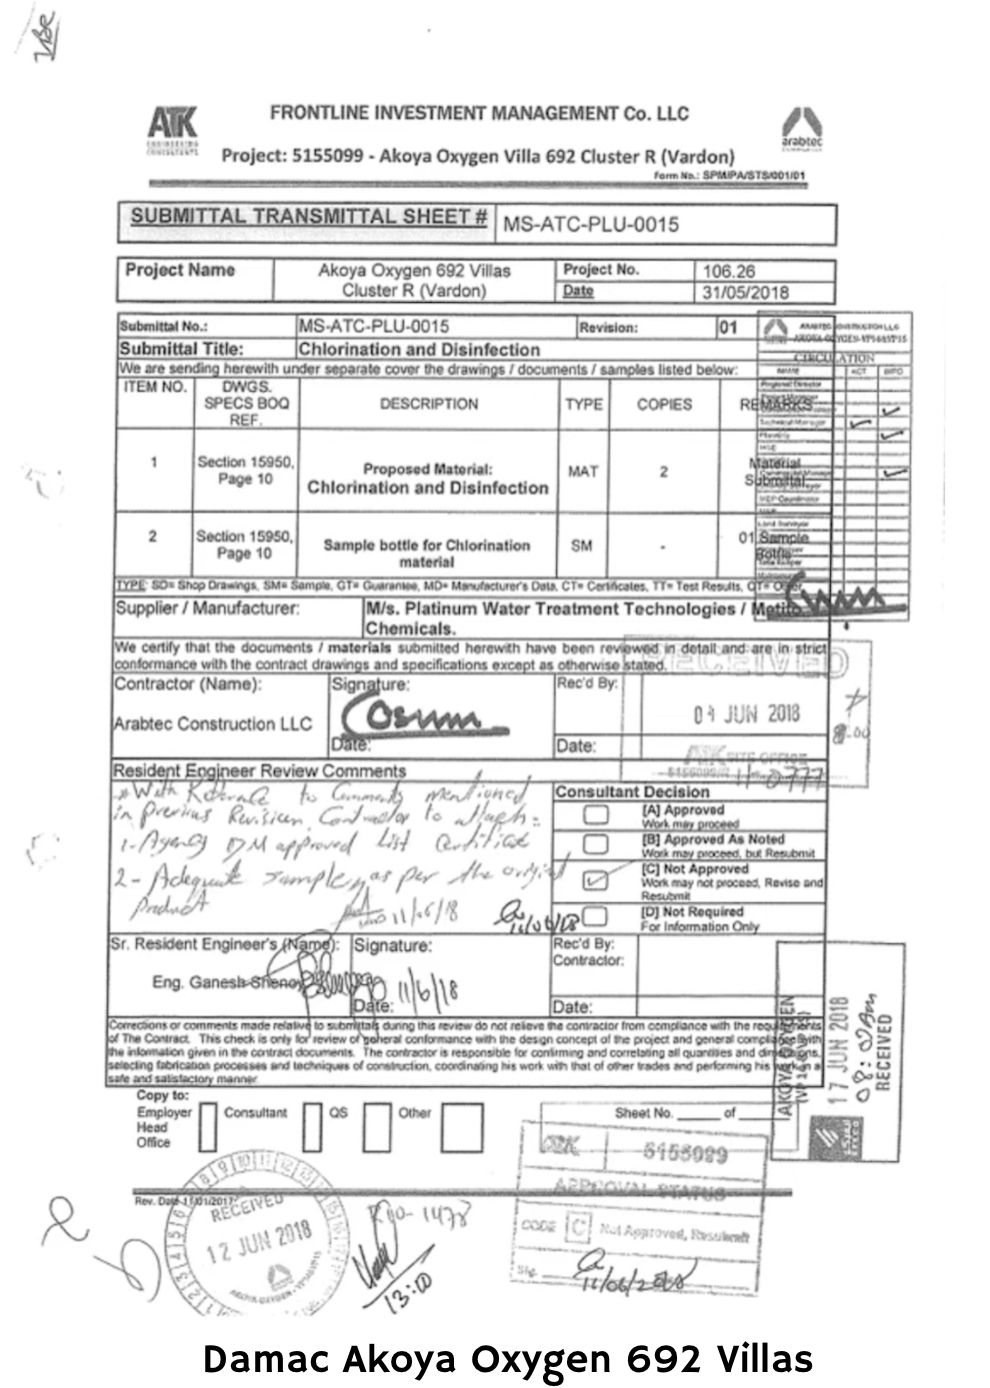 ATK
ENGINEERING
CONSULTANTS
FRONTLINE INVESTMENT MANAGEMENT Co. LLC
arabtec
Project: 5155099 - Akoya Oxygen Villa 692 Cluster R (Vardon)
Form No.: SPM/PA/STS/001/01
SUBMITTAL TRANSMITTAL SHEET # MS-ATC-PLU-0015
Project Name Akoya Oxygen 692 Villas Cluster R (Vardon) Project No. 106.26
Date 31/05/2018
Submittal No.: MS-ATC-PLU-0015 Revision: 01
Submittal Title: Chlorination and Disinfection
We are sending herewith under separate cover the drawings / documents / samples listed below:
ITEM NO. DWGS. SPECS BOQ REF. DESCRIPTION TYPE COPIES REMARKS
1 Section 15950, Page 10 Proposed Material: Chlorination and Disinfection MAT 2 Material Submittal
2 Section 15950, Page 10 Sample bottle for Chlorination material SM - 01 Sample Bottle
CIRCULATION
NAME ACT INFO
TYPE: SD= Shop Drawings, SM= Sample, GT= Guarantee, MD= Manufacturer's Data, CT= Certificates, TT= Test Results, OT= Other
Supplier / Manufacturer: M/s. Platinum Water Treatment Technologies / Metito Chemicals.
We certify that the documents / materials submitted herewith have been reviewed in detail and are in strict
conformance with the contract drawings and specifications except as otherwise stated.
RECEIVED
Contractor (Name): Signature: Rec'd By:
Arabtec Construction LLC
04 JUN 2018
Date: Date:
ATK SITE OFFICE
Resident Engineer Review Comments
* With Reference to Comments mentioned
in previous Revision Contractor to attach:
1- Agency DM approved list Certificate
2- Adequate sample, as per the original
product
11/06/18
11/06/18
Consultant Decision
[A] Approved
Work may proceed
[B] Approved As Noted
Work may proceed, but Resubmit
[C] Not Approved
Work may not proceed, Revise and
Resubmit
[D] Not Required
For Information Only
Sr. Resident Engineer's (Name): Signature: Rec'd By: Contractor:
Eng. Ganesh Shenoy
Date: 11/6/18 Date:
Corrections or comments made relative to submittals during this review do not relieve the contractor from compliance with the requirements
of The Contract. This check is only for review of general conformance with the design concept of the project and general compliance with
the information given in the contract documents. The contractor is responsible for confirming and correlating all quantities and dimensions,
selecting fabrication processes and techniques of construction, coordinating his work with that of other trades and performing his work in a
safe and satisfactory manner.
AKOYA OXYGEN
17 JUN 2018
RECEIVED
Copy to:
Employer Head Office Consultant QS Other Sheet No. ____ of ____
ATK 5155099
APPROVAL STATUS
CODE C Not Approved, Resubmit
Sig. 11/06/2018
Rev. Date 11/01/2017
RECEIVED
12 JUN 2018
13:00
Damac Akoya Oxygen 692 Villas